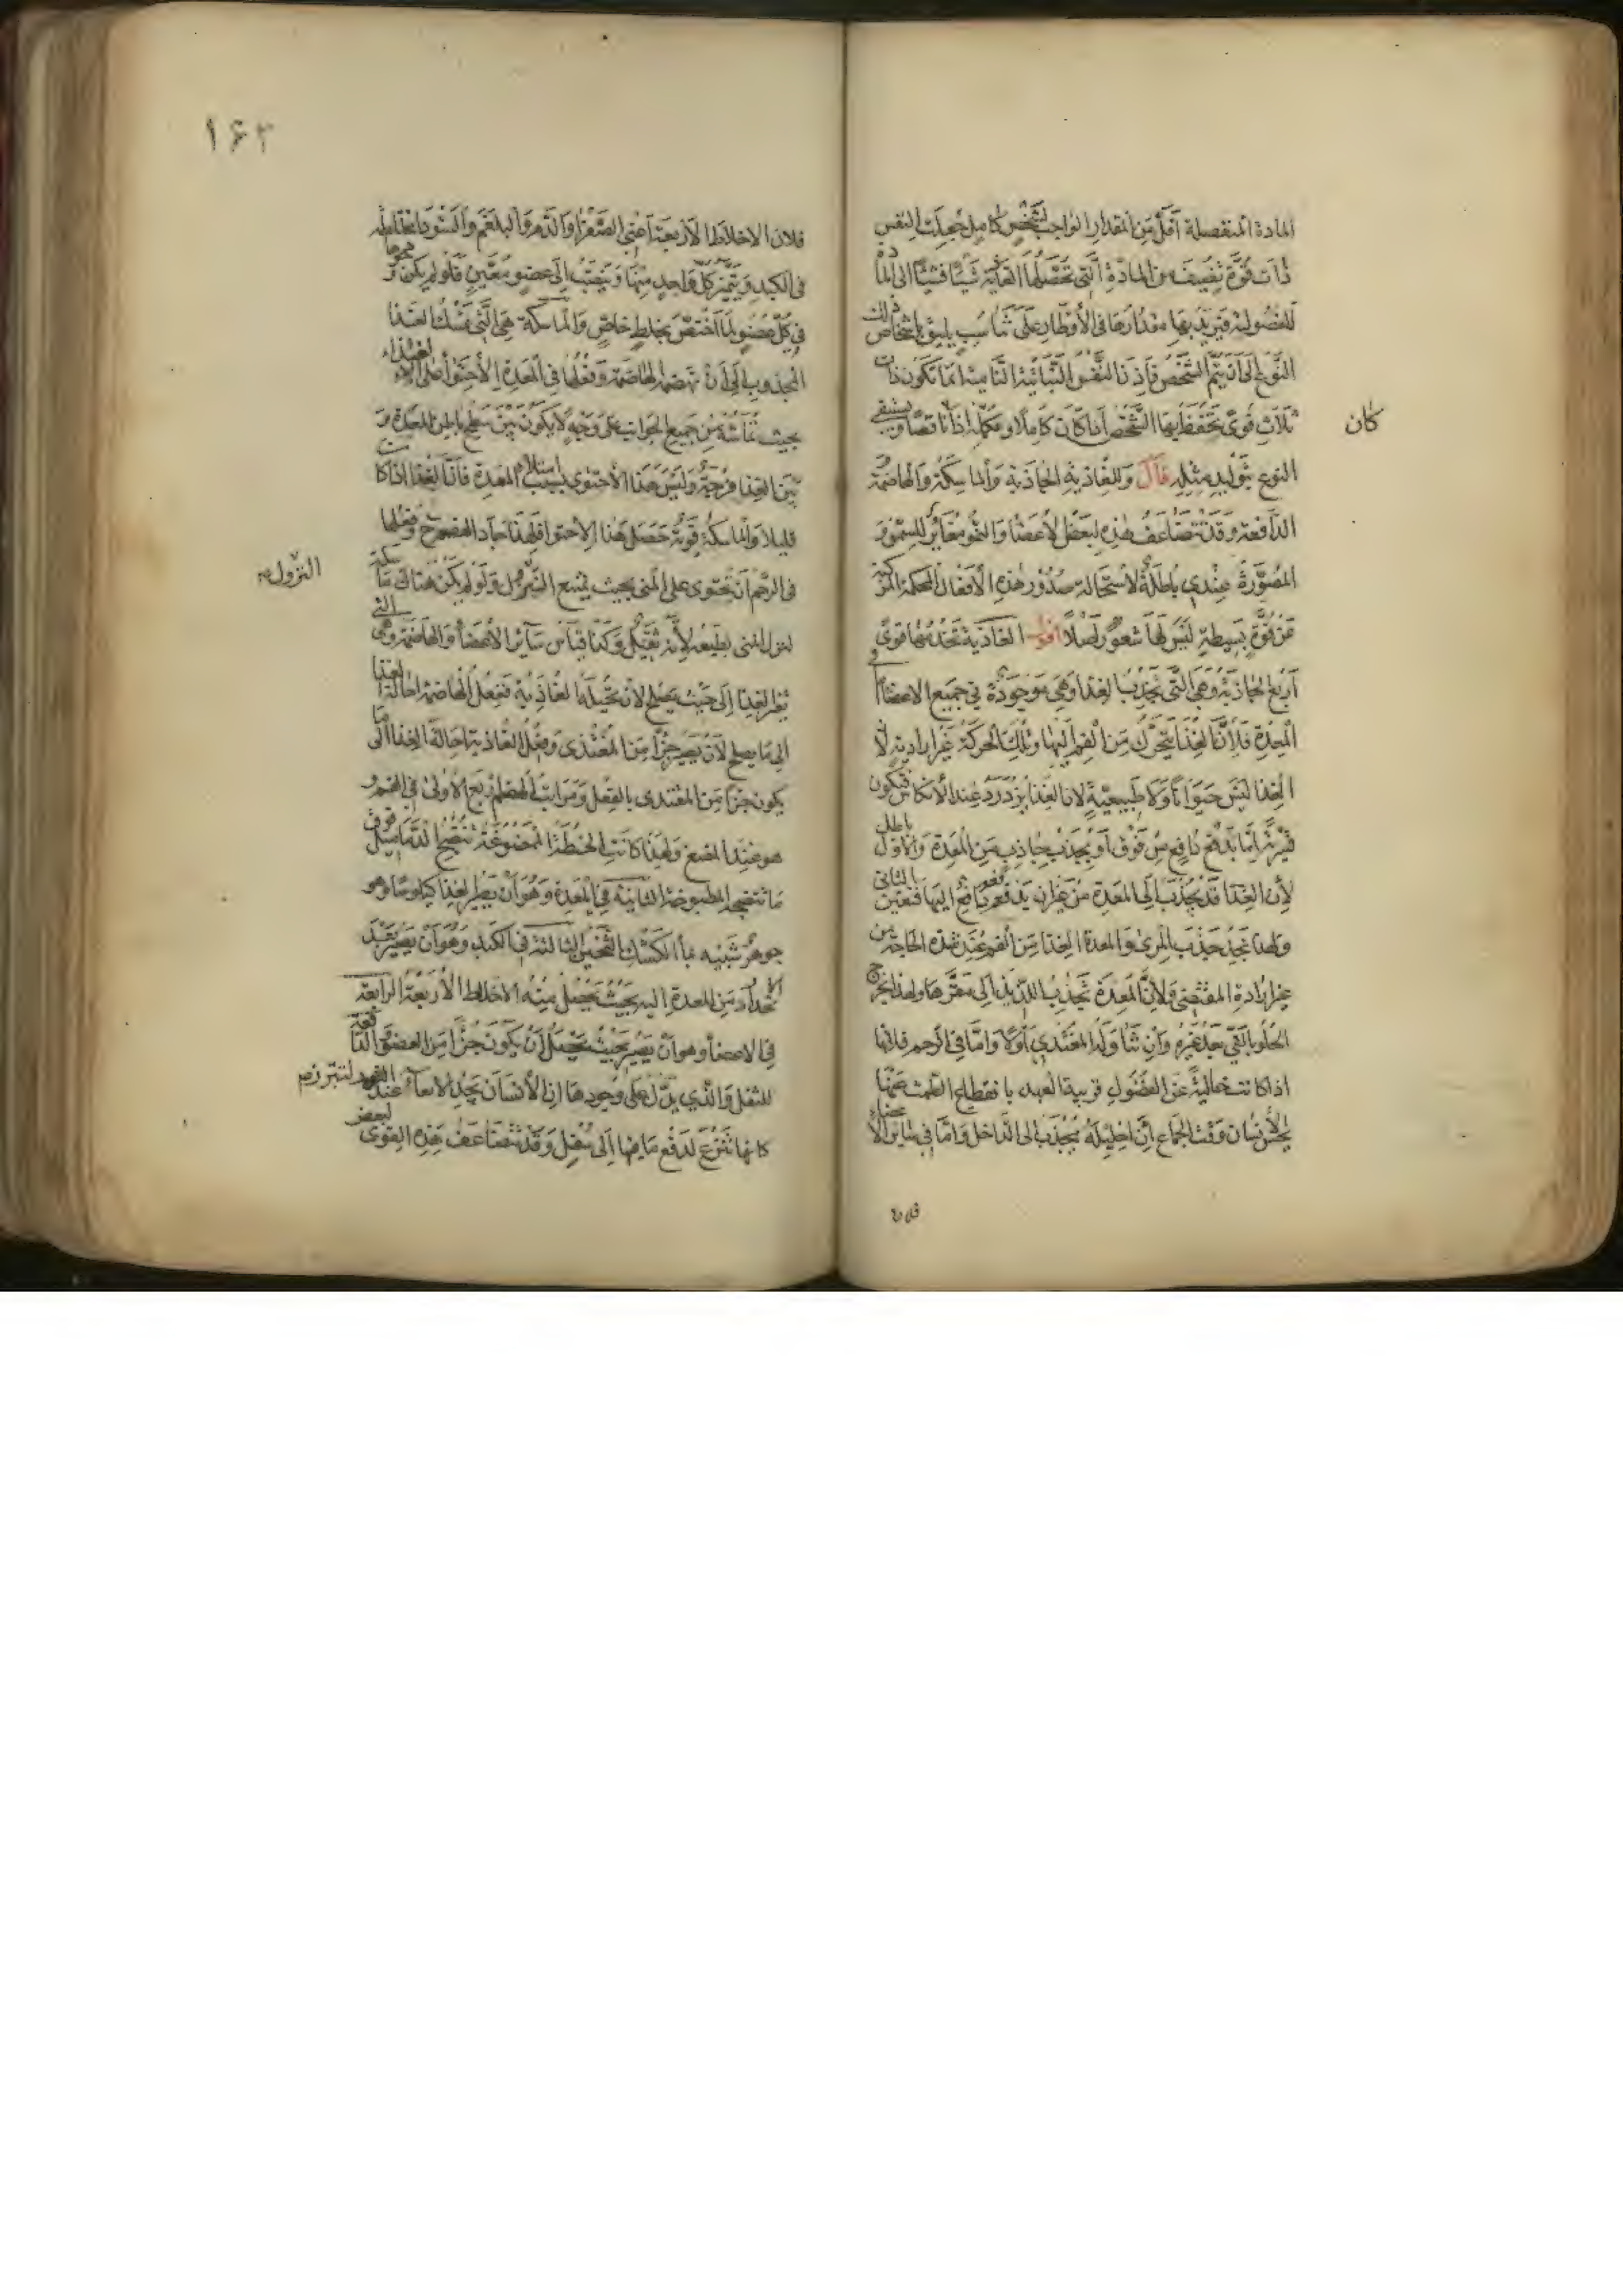 المادة المنفصلة أقل من المقدار الواجب لشخص كامل جعلت النفس
ذات قوة تضيف من المادة التي تحصلها الغاذية شيئا فشيئا الى المادة
الفضولية فيزيد بها مقدارها في الأقطار على تناسب يليق باشخاص ذلك
النوع الى أن يتم الشخص فاذن النفس النباتية التامية انما تكون ذات
ثلاث قوى تحفظ بها الشخص اذا كان كاملا وتكمله اذا ناقصا ويستبقي
كان
النوع بتوليد مثله قال وللغاذية الجاذبة والماسكة والهاضمة و
الدافعة وقد تتضاعف هذه لبعض الأعضا والنمو مغاير للسمن و
المصورة عندي باطلة لاستحالة صدور هذه الأفعال المحكمة المركبة
عن قوة بسيطة ليس لها شعور أصلا اقول الغاذية تخدمها قوى
أربع الجاذبة وهي التي تجذب الغذا وهي موجودة في جميع الاعضا أما
المعدة فلأن الغذا يتحرك من الفم اليها وتلك الحركة غير ارادية لأن
الغذا ليس حيوانا ولا طبيعية لان الغذا يزدرد عند الانتكاس فتكون
قسرية اما بدفع دافع من فوق أو بجذب جاذب من المعدة والاول باطل
لأن الغذا قد يجذب الى المعدة من غير ان يدفعه دافع اليها فتعين الثاني
ولهذا نجد جذب المرئ والمعدة الغذا من الفم عند شدة الحاجة من
غير ارادة المغتذي ولأن المعدة تجذب اللذيذ الى مقعرها ولهذا يخرج
الحلو بالقي بعد غيره وان تناوله المغتذي أولا واما في الرحم فلانها
اذا كانت خالية عن الفضول قريبة العهد بانقطاع الطمث عنها
يحس الانسان وقت الجماع أن احليله يجذب الى الداخل واما في سائر الأعضاء
فلان
١٦٣
فلان الاخلاط الأربعة أعني الصفرا والدم والبلغم والسودا مختلطة
في الكبد ويتميز كل واحد منها وينصب الى عضو معين فلو لم يكن
في كل عضو لما اختص بخلط خاص والماسكة هي التي تمسك الغذا
المجذوب الى أن تهضمه الهاضمة وفعلها في المعدة الاحتوا على الغذاء
بحيث تماسه من جميع الجوانب على وجه لا يكون بين سطح باطن المعدة و
بين الغذا فرجة وليس هذا الأحتوى بسبب امتلاء المعدة فان الغذا اذا كان
قليلا والماسكة قوية حصل هذا الاحتوا فلهذا جاد الهضم وفعلها
في الرحم أن تحتوى على المنى بحيث تمنع النزول ولو لم يكن هناك ماسكة
النزول
لنزل المنى بطبعه لأنه ثقيل وكذا قياس سائر الأعضا والهاضمة وهي التي
تغير الغذا الى حيث يصلح لان تحيله الغاذية ففعل الهاضمة احالة الغذا
الى ما يصلح لأن يصير جزأ من المغتذى وفعل الغاذية احالة الغذا الى ما
يكون جزأ من المغتذى بالفعل ومراتب الهضم أربع الأولى في الفم و
هو عند المضغ ولهذا كانت الحنطة الممضوغة تنضج الدماميل فوق
ما تنضجه المطبوخة الثانية في المعدة وهو أن يصير الغذا كيلوسا وهو
جوهر شبيه بماء الكشك الثخين الثالثة في الكبد وهو أن يصير بعد
الانحدار من المعدة اليه بحيث يحصل منه الاخلاط الأربعة الرابعة
في الاعضأ وهو أن يصير بحيث يحصل أن يكون جزأ من العضو الدافعة
للثفل والذي يدل على وجودها ان الأنسان يجد الامعاء عند التبرز
كانها تنتزع لدفع ما فيها الى أسفل وقد تتضاعف هذه القوى لبعض